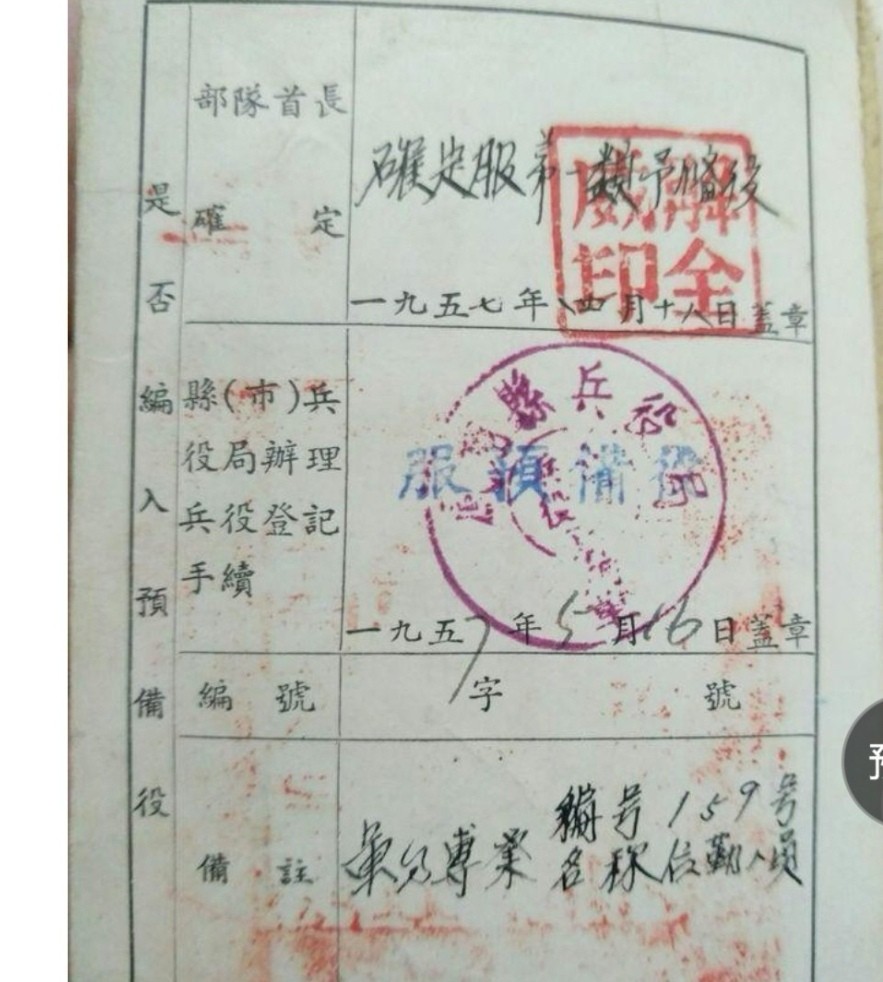 是否編入預備役
部隊首長
確定
確定服第一類予俻役
一九五七年四月十八日蓋章
解全
印
縣(市)兵
役局辦理
兵役登記
手續
縣兵役
服預備役
一九五7年5月16日蓋章
編號
字號
備註
專業
編号159号
名称 勤人員